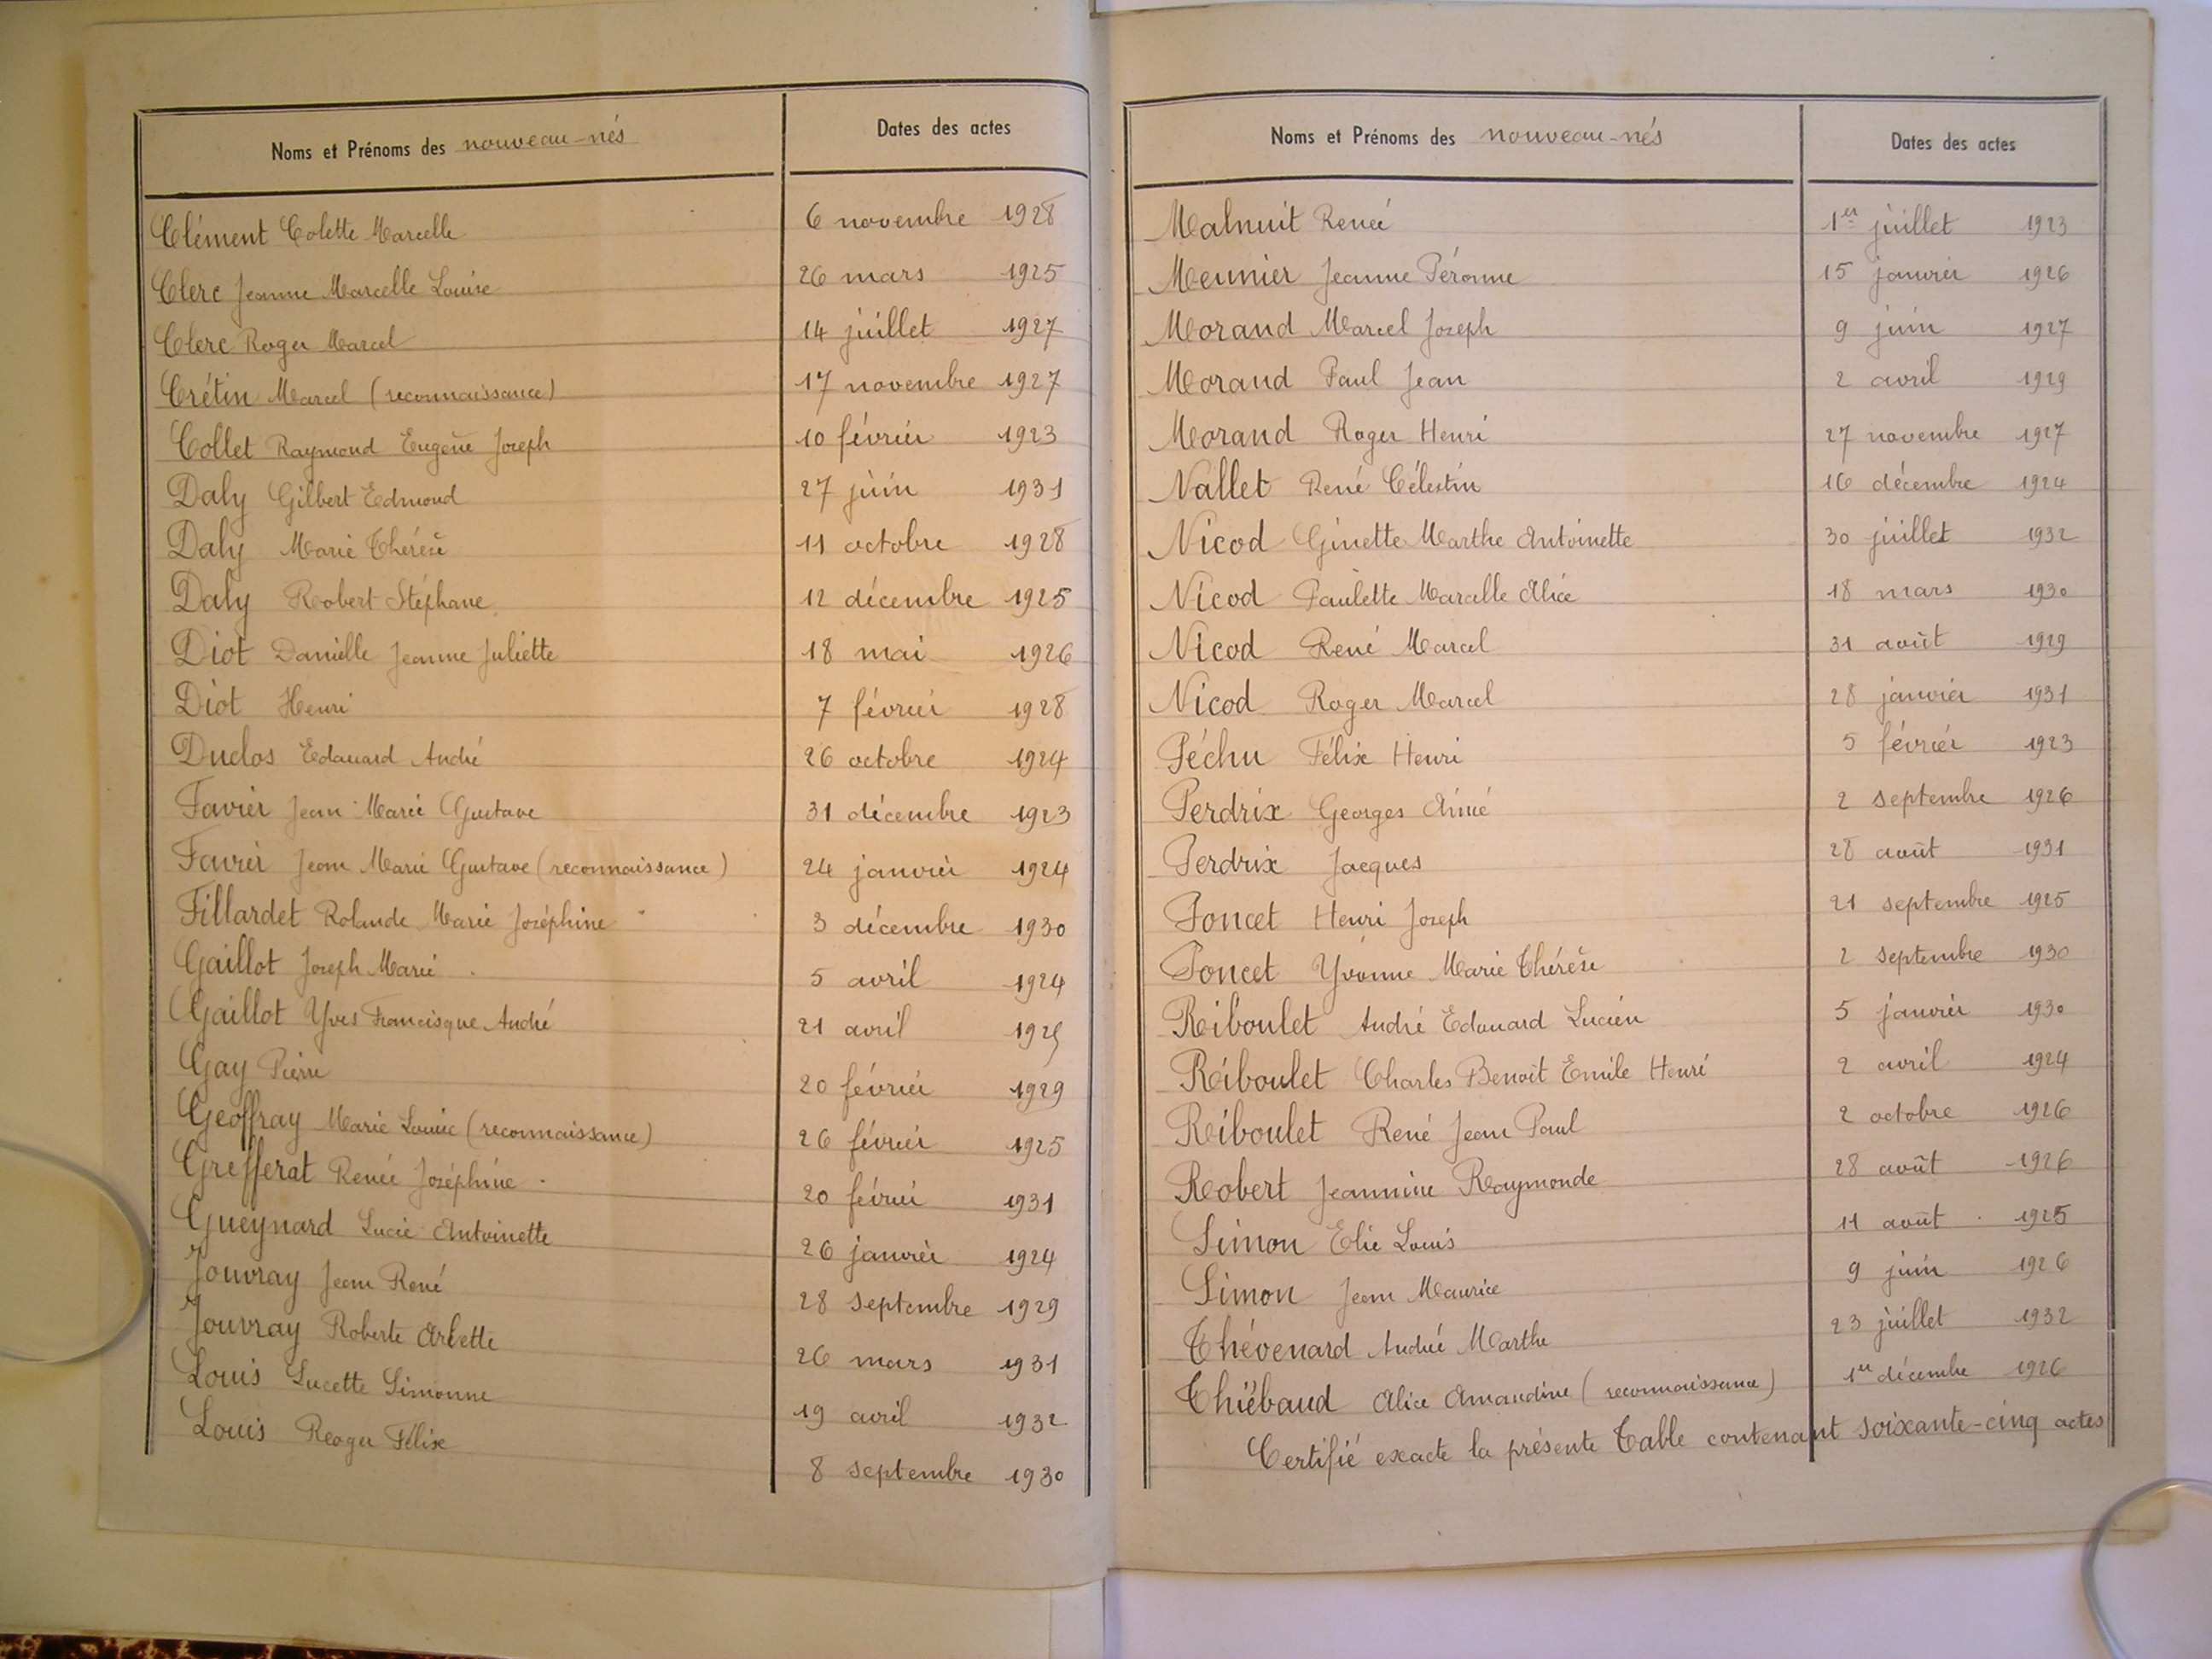 Noms et Prénoms des nouveau-nés Dates des actes
Clément Colette Marcelle 6 novembre 1928
Clerc Jeanne Marcelle Louise 26 mars 1925
Clerc Roger Marcel 14 juillet 1927
Crétin Marcel (reconnaissance) 17 novembre 1927
Collet Raymond Eugène Joseph 10 février 1923
Daly Gilbert Edmond 27 juin 1931
Daly Marie Thérèse 11 octobre 1928
Daly Robert Stéphane 12 décembre 1925
Diot Danielle Jeanne Juliette 18 mai 1926
Diot Henri 7 février 1928
Duclos Edouard André 26 octobre 1924
Favier Jean Marie Gustave 31 décembre 1923
Favier Jean Marie Gustave (reconnaissance) 24 janvier 1924
Fillardet Rolande Marie Joséphine 3 décembre 1930
Gaillot Joseph Marie 5 avril 1924
Gaillot Yves Francisque André 21 avril 1925
Gay Pierre 20 février 1929
Geoffray Marie Louise (reconnaissance) 26 février 1925
Grefferat Renée Joséphine 20 février 1931
Gueynard Lucie Antoinette 26 janvier 1924
Jouvray Jean René 28 septembre 1929
Jouvray Roberte Arlette 26 mars 1931
Louis Lucette Simonne 19 avril 1932
Louis Roger Félix 8 septembre 1930
Noms et Prénoms des nouveau-nés Dates des actes
Malnuit Renée 1er juillet 1923
Meunier Jeanne Péronne 15 janvier 1926
Morand Marcel Joseph 9 juin 1927
Morand Paul Jean 2 avril 1929
Morand Roger Henri 27 novembre 1927
Nallet René Célestin 16 décembre 1924
Nicod Ginette Marthe Antoinette 30 juillet 1932
Nicod Paulette Marcelle Alice 18 mars 1930
Nicod René Marcel 31 août 1929
Nicod Roger Marcel 28 janvier 1931
Péchu Félix Henri 5 février 1923
Perdrix Georges Aimé 2 septembre 1926
Perdrix Jacques 28 août 1931
Poncet Henri Joseph 21 septembre 1925
Poncet Yvonne Marie Thérèse 2 septembre 1930
Riboulet André Edouard Lucien 5 janvier 1930
Riboulet Charles Benoit Emile Henri 2 avril 1924
Riboulet René Jean Paul 2 octobre 1926
Robert Jeannine Raymonde 28 août 1926
Simon Elie Louis 11 août 1925
Simon Jean Maurice 9 juin 1926
Thévenard Andrée Marthe 23 juillet 1932
Thiébaud Alice Amandine (reconnaissance) 1er décembre 1926
Certifié exacte la présente Table contenant soixante-cinq actes